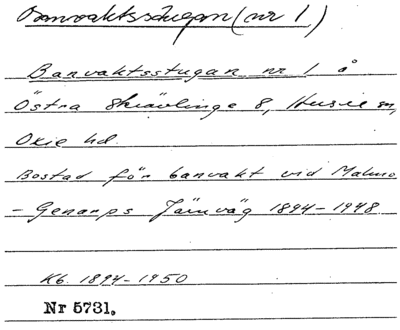 Banvaktsstugan (nr 1)
Banvaktsstugan nr 1 å
Östra Skrävlinge 8, Husie sn,
Oxie hd.
Bostad för banvakt vid Malmö
- Genarps Järnväg 1894-1948
Kb. 1894-1950
Nr 5731.